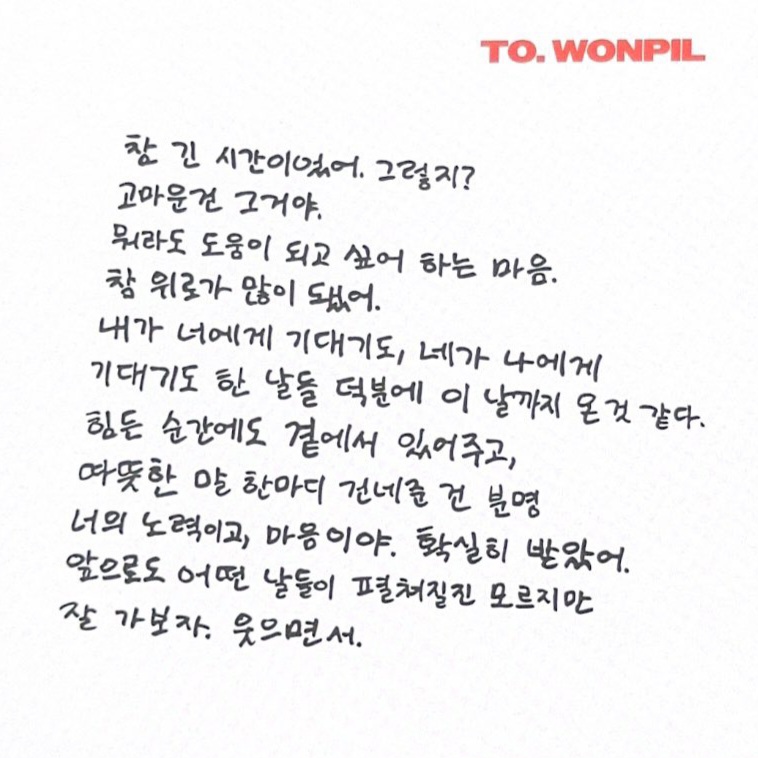 TO. WONPIL
참 긴 시간이었어. 그렇지?
고마운건 그거야.
뭐라도 도움이 되고 싶어 하는 마음.
참 위로가 많이 됐어.
내가 너에게 기대기도, 네가 나에게
기대기도 한 날들 덕분에 이 날까지 온것 같다.
힘든 순간에도 곁에서 있어주고,
따뜻한 말 한마디 건네준 건 분명
너의 노력이고, 마음이야. 확실히 받았어.
앞으로도 어떤 날들이 펼쳐질진 모르지만
잘 가보자. 웃으면서.